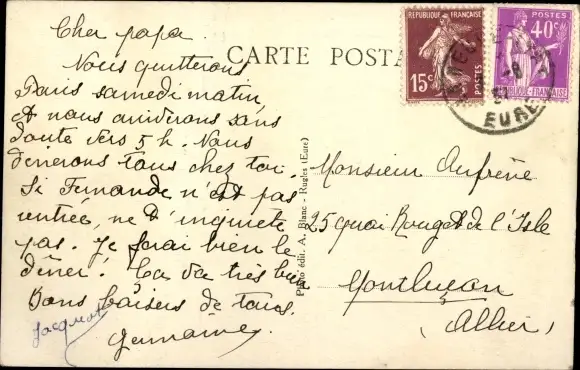 CARTE POSTA
RÉPUBLIQUE FRANÇAISE
15c
POSTES
POSTES
40c
RÉPUBLIQUE-FRANÇAISE
EURE
Cher papa
Nous quitterons
Paris samedi matin,
et nous arriverons sans
doute vers 5 h. Nous
dinerons tous chez toi.
Si Fernande n'est pas
rentrée, ne t'inquiete
pas. Je ferai bien le
dîner! Ça va très bien
Bons baisers de tous.
Germaine.
Jacquot
Photo édit. A. Blanc - Rugles (Eure)
Monsieur Aufrène
25 quai Rouget de l'Isle
Montluçon
(Allier)